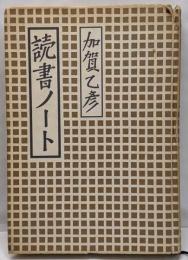 加賀乙彦
読書ノート